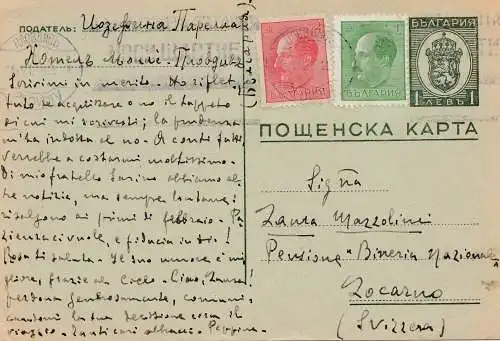 ПОДАТЕЛЬ: Иозефина Парелла
Хотель Молле. Пловдивъ
(България)
Scrivimi in merito. Ho riflet-
tuto se acquistare o no il tappeto
di cui mi scrivesti; la prudenza
m'ha indotta al no. A conti fatti,
verrebbe a costarmi moltissimo.
Di mio fratello abbiamo al-
tre notizie, ma sempre lontane:
risalgono ai primi di febbraio. Pa-
zienza ci vuole, e fiducia in
Rosa ti saluta. Il suo umore è mi-
gliore, grazie al Cielo. Ciao, Zaura!
Perdona generosamente, comuni-
candomi la tua decisione circa il
viaggio. Tanti cari abbracci. Peppina
БЪЛГАРИЯ
БЪЛГАРИЯ
БЪЛГАРИЯ
1 ЛЕВЪ 1
ПОЩЕНСКА КАРТА
Sig.na
Zaura Mazzolini
Pensione "Bireria Nazionale
Locarno
(Svizzera)